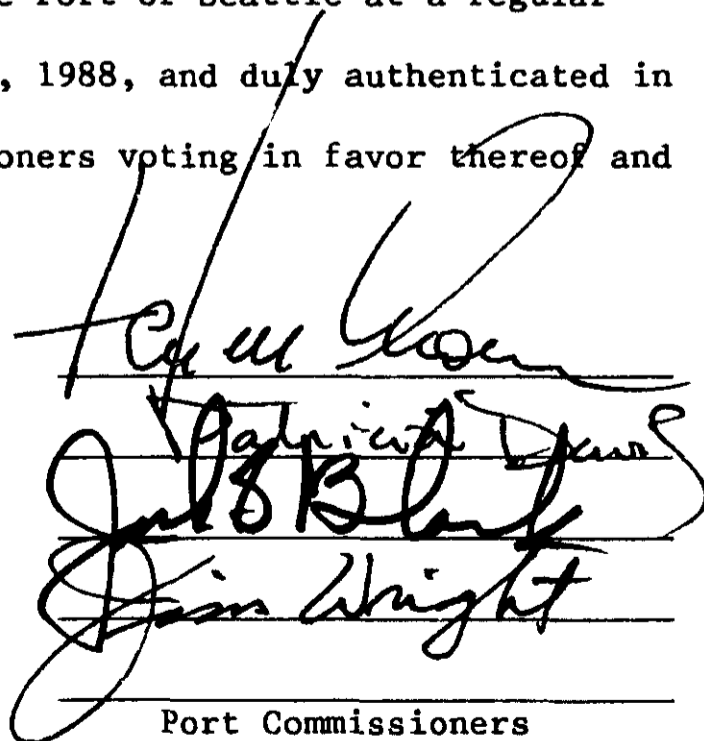 e Port of Seattle at a regular
, 1988, and duly authenticated in
ioners voting in favor thereof and
Patricia Davis
Jack S Block
Jim Wright
Port Commissioners